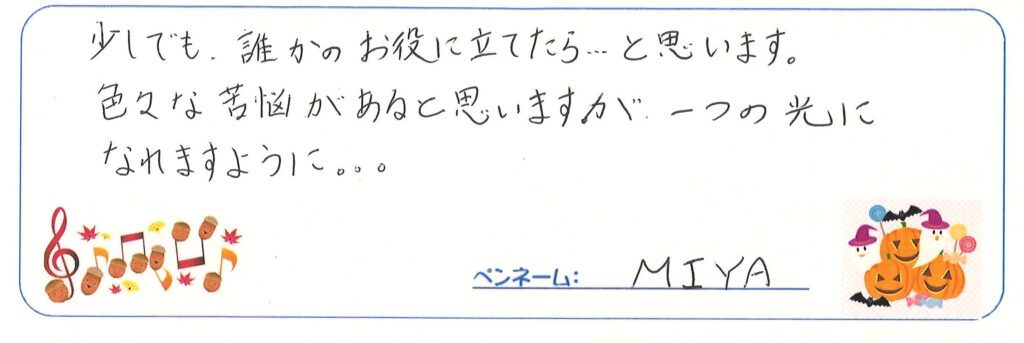 少しでも、誰かのお役に立てたら…と思います。
色々な苦悩があると思いますが、一つの光に
なれますように。。。
ペンネーム: MIYA